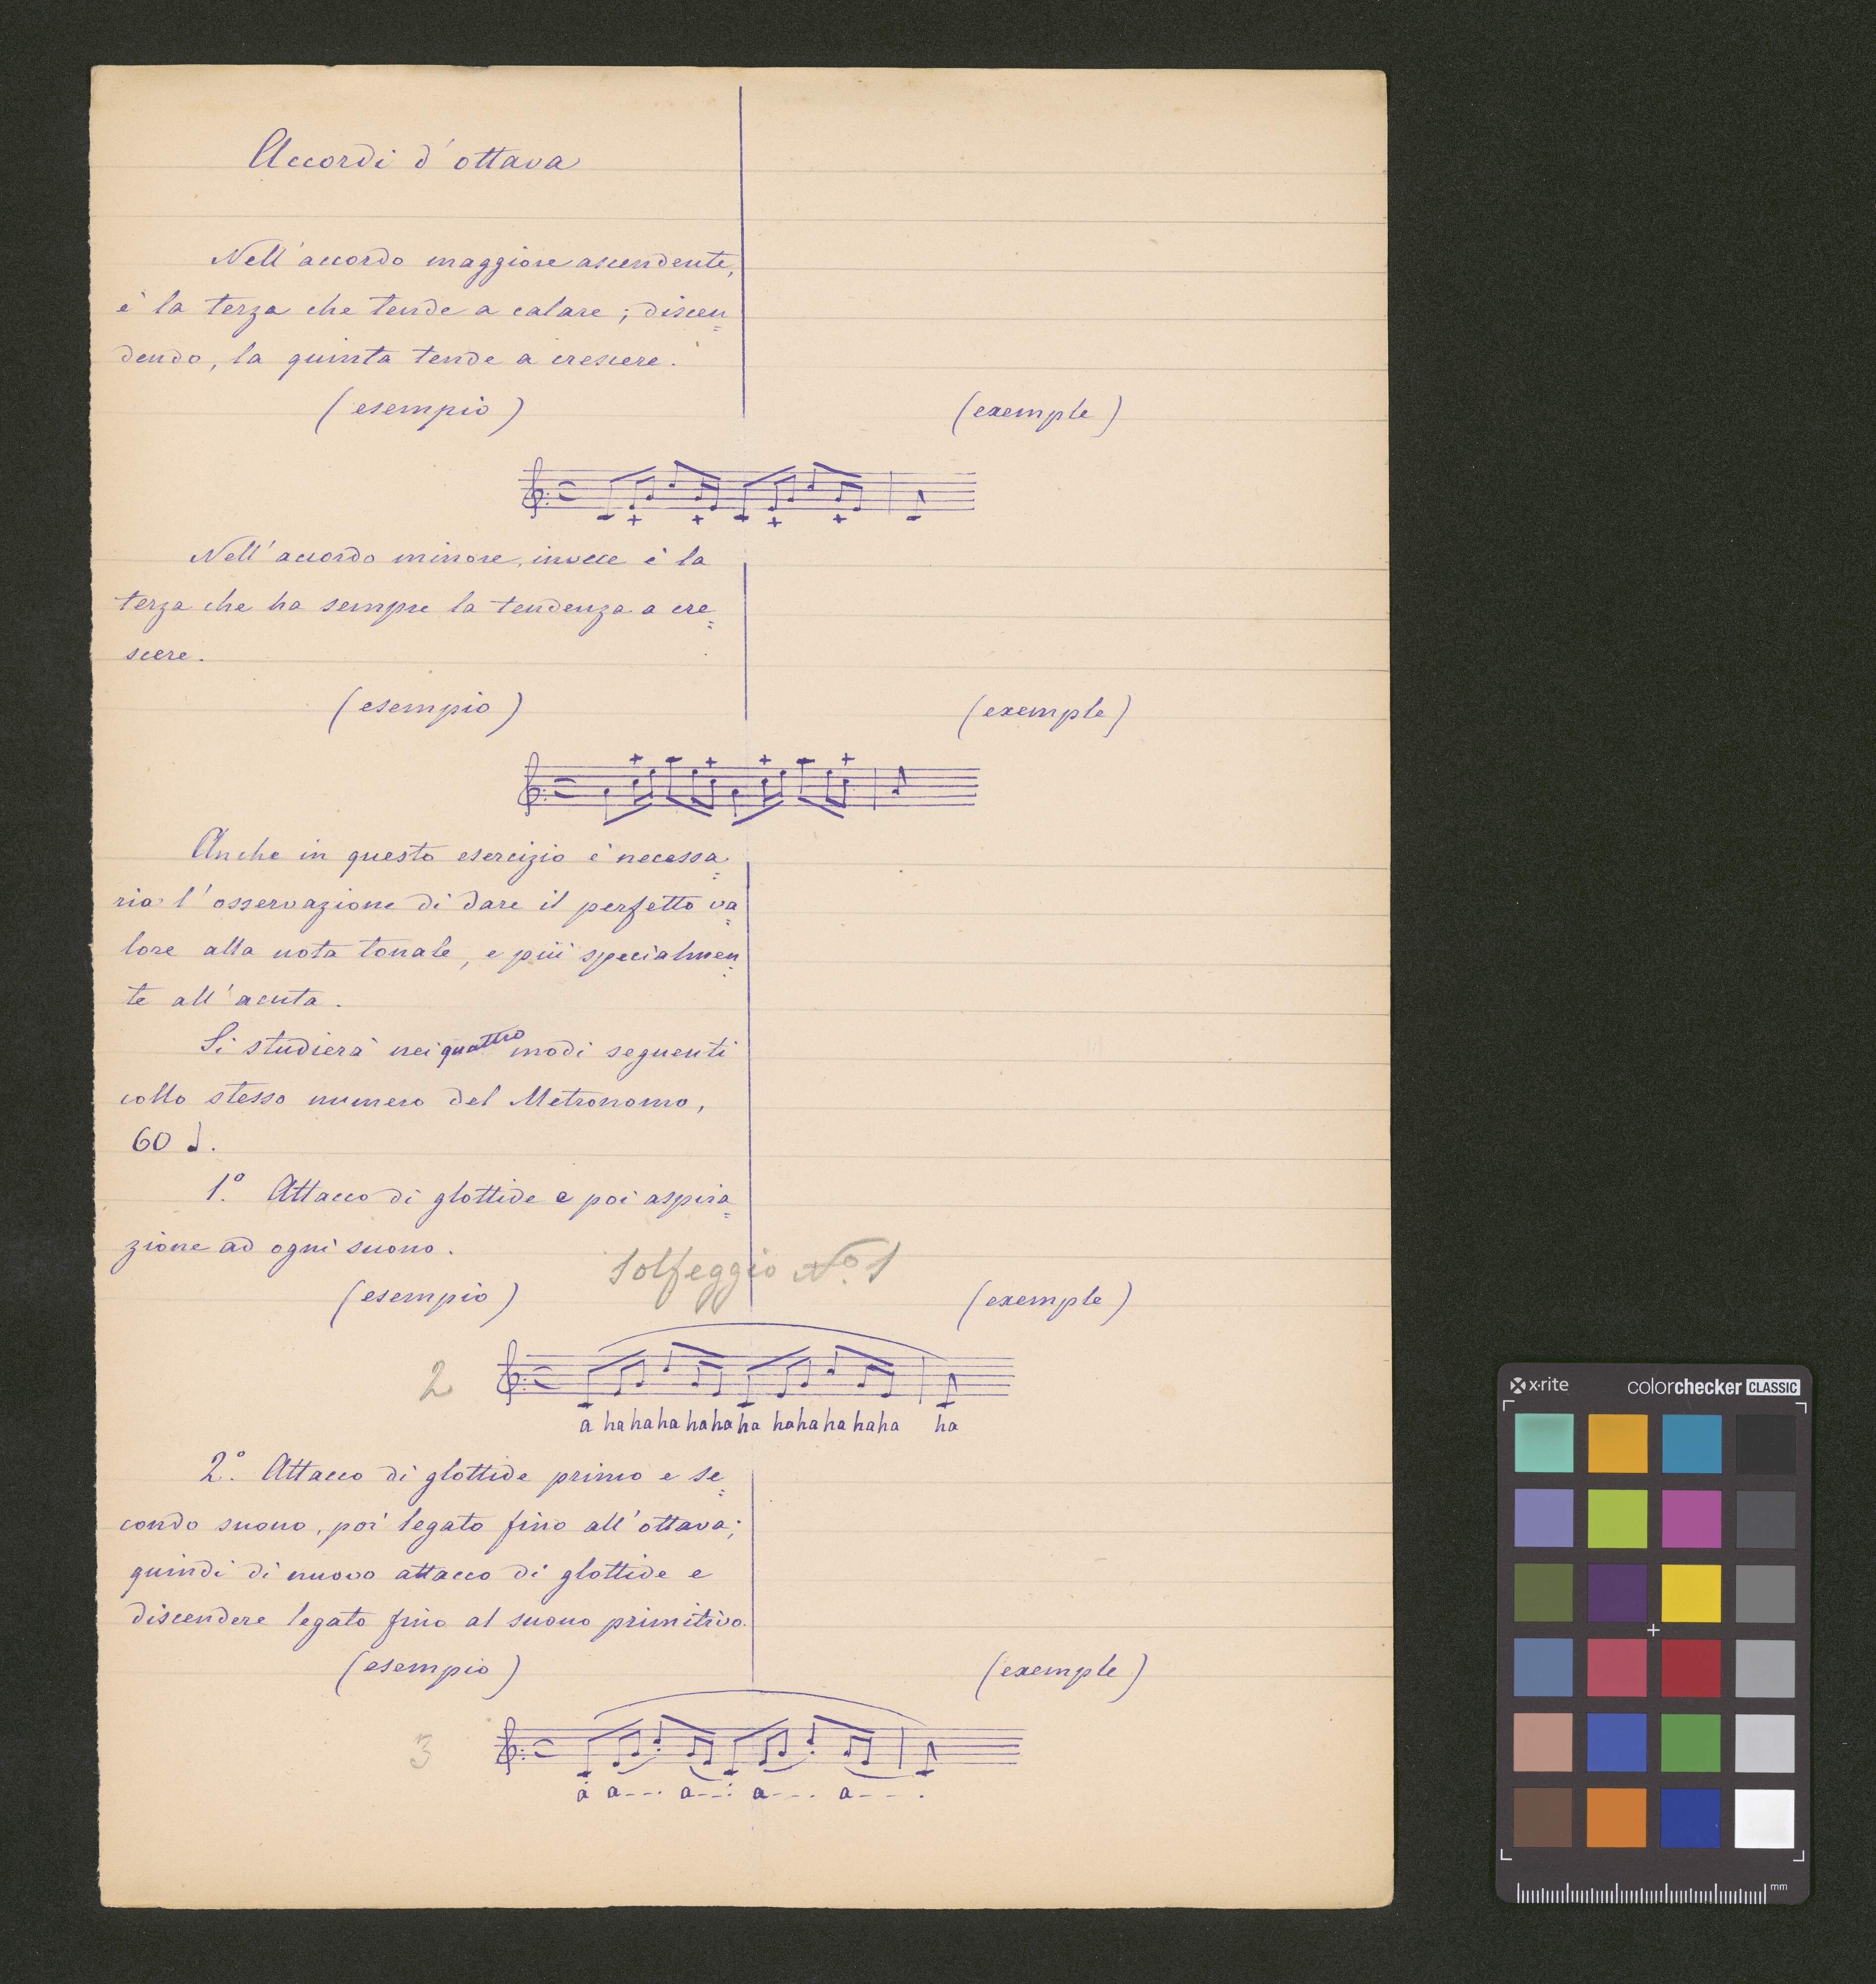 Accordi d'ottava
Nell'accordo maggiore ascendente,
è la terza che tende a calare; discen=
dendo, la quinta tende a crescere.
(esempio) (exemple)
+ + + +
Nell'accordo minore, invece è la
terza che ha sempre la tendenza a cre=
scere.
(esempio) (exemple)
+ + + +
Anche in questo esercizio è necessa=
ria l'osservazione di dare il perfetto va=
lore alla nota tonale, e più specialmen=
te all'acuta.
Si studierà nei quattro modi seguenti
collo stesso numero del Metronomo,
60 ♩.
1.° Attacco di glottide e poi aspira=
zione ad ogni suono.
Solfeggio No. 1
(esempio) (exemple)
2
a ha ha ha ha ha ha ha ha ha ha ha ha
2.° Attacco di glottide primo e se=
condo suono, poi legato fino all'ottava;
quindi di nuovo attacco di glottide e
discendere legato fino al suono primitivo.
(esempio) (exemple)
3
a a--- a--- a--- a---
x·rite colorchecker CLASSIC
mm